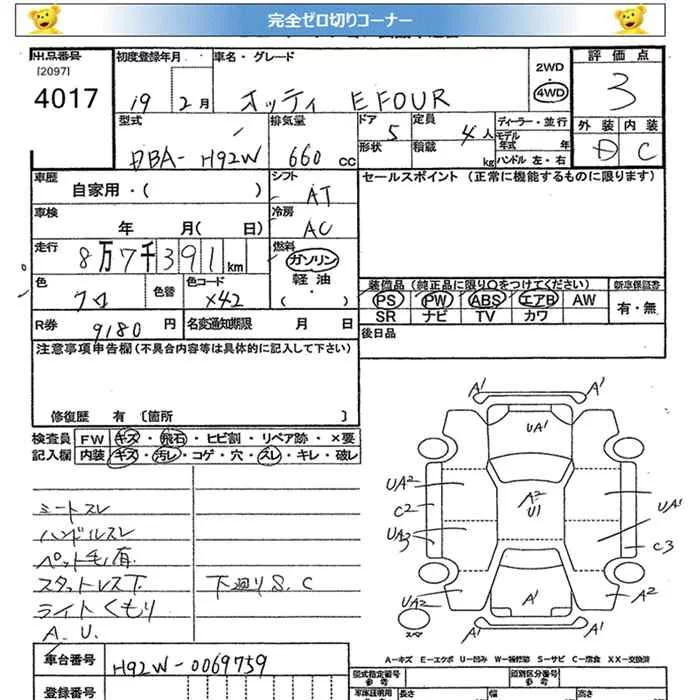 完全ゼロ切りコーナー
出品番号 初度登録年月 車名・グレード 評価点
[2097]
4017
19 2月 オッティ E FOUR 2WD 4WD 3
型式 排気量 ドア 定員 ディーラー・並行 外装 内装
DBA- H92W 660 cc 5 4人 モデル年式 年
形状 積載 kg ハンドル 左・右 D C
車歴 シフト セールスポイント(正常に機能するものに限ります)
自家用・( ) AT
車検 冷房
年 月( 日) AC
走行 燃料
8万7千391km ガソリン
色 色替 色コード 軽油
クロ X42 ・( )
装備品(純正品に限り〇をつけてください) 新車保証書
PS PW ABS エアB AW 有・無
SR ナビ TV カワ
R券 9180円 名変通知期限 月 日 後日品
注意事項申告欄(不具合内容等は具体的に記入して下さい)
修復歴 有〔箇所 〕
検査員 FW キズ・飛石・ヒビ割・リペア跡・×要
記入欄 内装 キズ・汚レ・コゲ・穴・スレ・キレ・破レ
シートスレ
ハンドルスレ
ペット毛有
スタットレス下 下廻りS.C
ライトくもり
A.U.
A' A'
UA'
UA2 A2 UA'
C2 U1
UA3 C3
UA2 A2
スペア A' A' A'
A-キズ E-エクボ U-凹み W-補修跡 S-サビ C-腐食 XX-交換済
車台番号 H92W-0069759
型式指定番号 類別区分番号
参考 参考
登録番号 車体証明用 長さ 幅 高さ